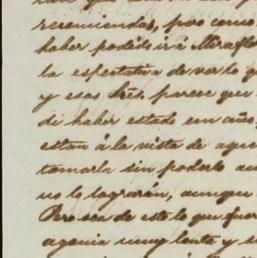 recomiendas, pero como
haber podido ir á Miraflo
la espectativa de ver lo q
y esos Sres. parece que
di haber estado un año,
estan á la vista de aque
tomarla sin poderlo
no lo lograrán, aunque
Pero sea de esto lo que fuer
agonia muy lenta y